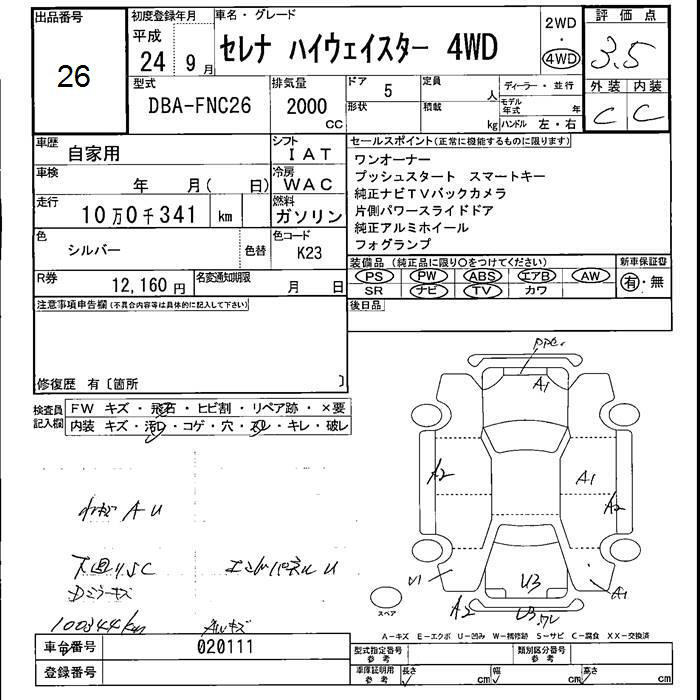 出品番号
26
初度登録年月
平成
24 9月
車名・グレード
セレナ ハイウェイスター 4WD
2WD
・
4WD
評価点
3.5
外装 内装
C C
型式
DBA-FNC26
排気量
2000
CC
ドア 5
形状
定員
人
積載
kg
ディーラー・並行
モデル年式 年
ハンドル 左・右
車歴
自家用
シフト
IAT
車検
年 月( 日)
冷房
WAC
走行
10万0千341 km
燃料
ガソリン
色
シルバー
色替
色コード
K23
R券
12,160円
名変通知期限
月 日
セールスポイント(正常に機能するものに限ります)
ワンオーナー
プッシュスタート スマートキー
純正ナビTVバックカメラ
片側パワースライドドア
純正アルミホイール
フォグランプ
装備品(純正品に限り○をつけてください)
PS PW ABS エアB AW
SR ナビ TV カワ
新車保証書
有・無
後日品
注意事項申告欄(不具合内容等は具体的に記入して下さい)
修復歴 有〔箇所 〕
検査員記入欄
FW キズ・飛石・ヒビ割・リペア跡・×要
内装 キズ・汚レ・コゲ・穴・スレ・キレ・破レ
A U
下廻りSC
Dミラーキズ
パネル U
100344km
AWキズ
PPC.
A1
A2
A1
A2
U1
U3
A1
A2
スペア
A-キズ E-エクボ U-凹み W-補修跡 S-サビ C-腐食 XX-交換済
車台番号
020111
登録番号
型式指定番号
参考
類別区分番号
参考
車庫証明用
参考
長さ cm
幅 cm
高さ cm